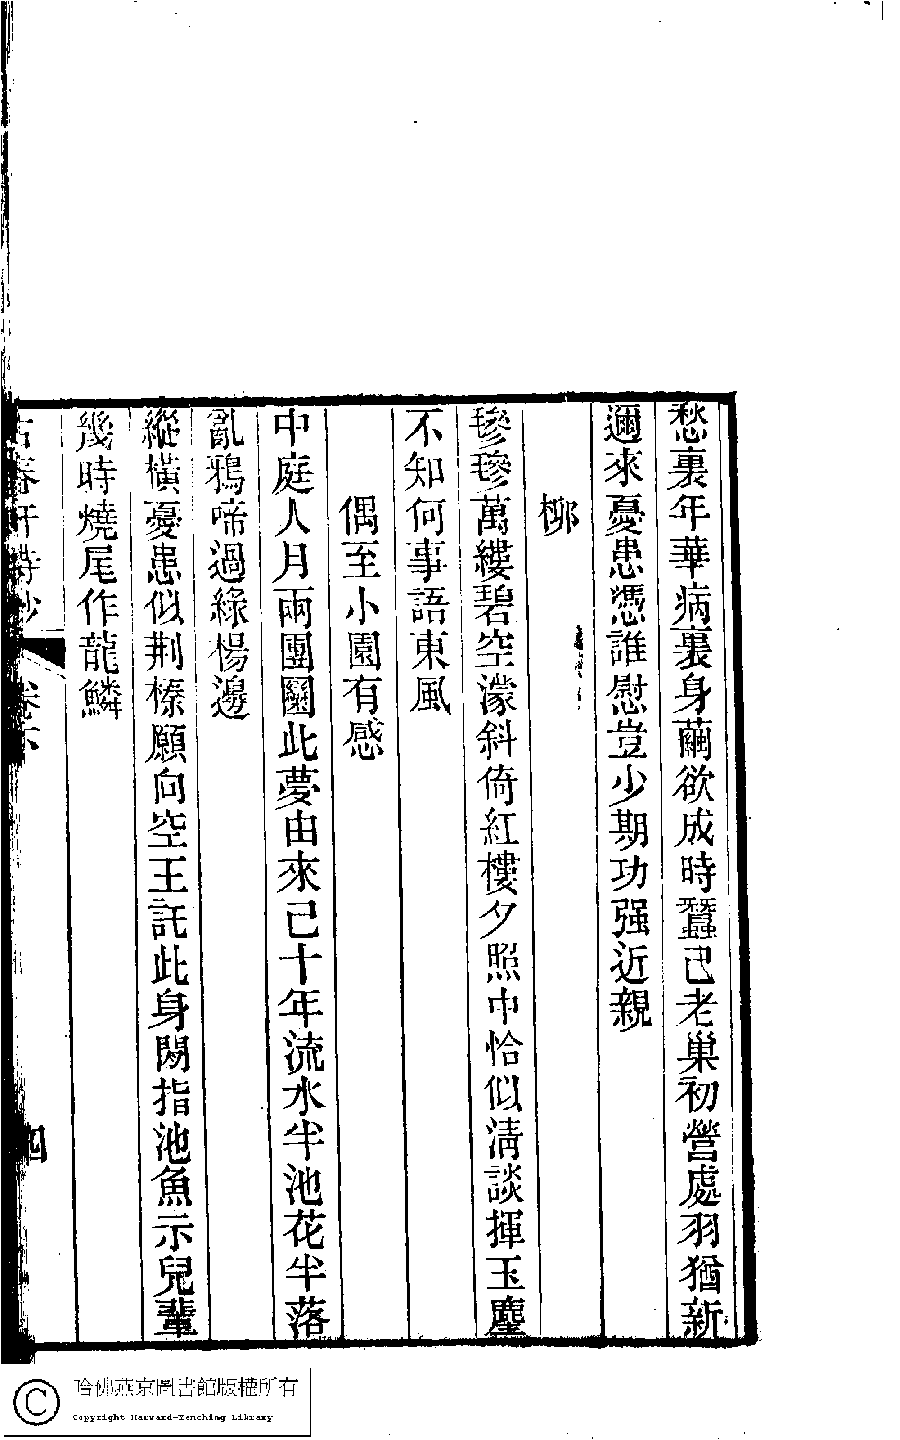 愁裏年華病裏身繭欲成時蠶已老巢初營處羽猶新
邇來憂患憑誰慰豈少期功强近親
柳
毿毿萬縷碧空濛斜倚紅樓夕照中恰似清談揮玉麈
不知何事語東風
偶至小園有感
中庭人月兩團圞此夢由來已十年流水半池花半落
亂鴉啼過綠楊邊
縱橫憂患似荆榛願向空王託此身閑指池魚示兒輩
幾時燒尾作龍鱗
古春軒詩鈔
卷下
四
哈佛燕京圖書館版權所有
Copyright Harvard-Yenching Library